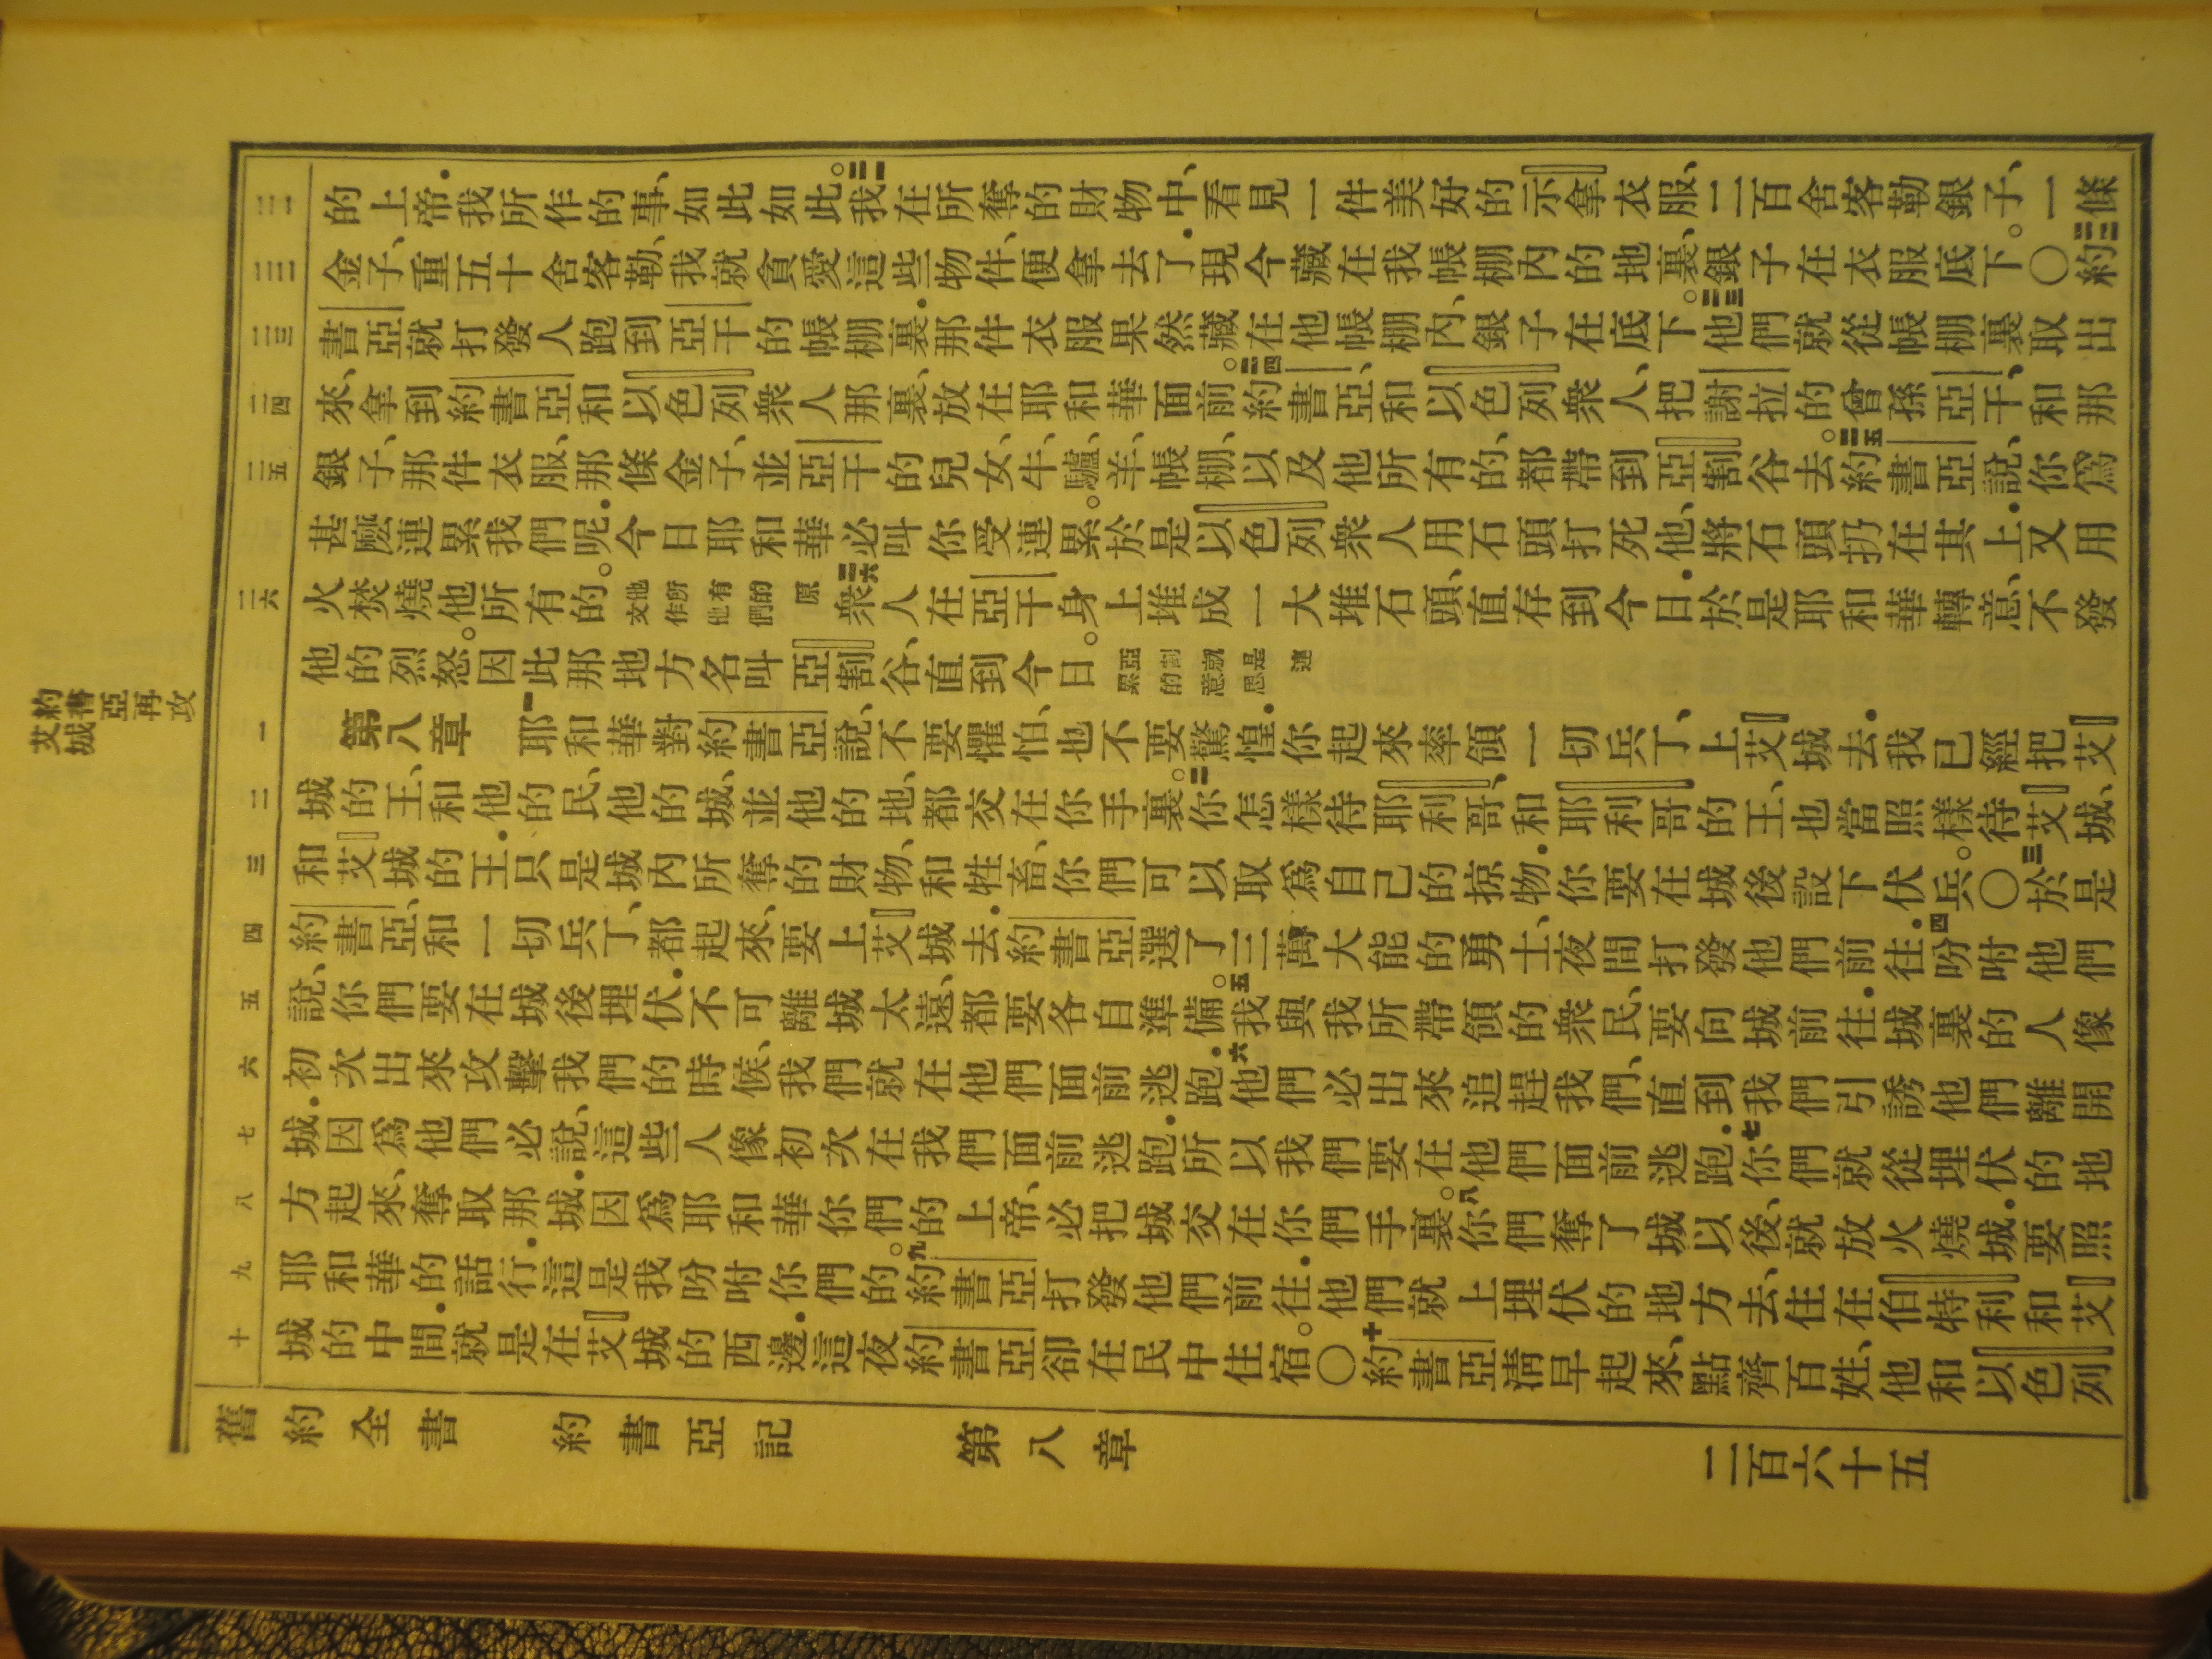 約書亞再攻
艾城
二一 的上帝．我所作的事、如此如此。二一我在所奪的財物中、看見一件美好的示拿衣服、二百舍客勒銀子、一條
二二 金子、重五十舍客勒、我就貪愛這些物件、便拿去了．現今藏在我帳棚內的地裏、銀子在衣服底下。〇二二約
二三 書亞就打發人跑到亞干的帳棚裏．那件衣服果然藏在他帳棚內、銀子在底下。二三他們就從帳棚裏取出
二四 來、拿到約書亞和以色列衆人那裏、放在耶和華面前。二四約書亞、和以色列衆人、把謝拉的曾孫亞干、和那
二五 銀子、那件衣服、那條金子、並亞干的兒女、牛、驢、羊、帳棚、以及他所有的、都帶到亞割谷去。二五約書亞說、你爲
甚麼連累我們呢．今日耶和華必叫你受連累。於是以色列衆人用石頭打死他、將石頭扔在其上．又用
二六 火焚燒他所有的。他所有的原文作他們 二六衆人在亞干身上堆成一大堆石頭、直存到今日．於是耶和華轉意、不發
他的烈怒。因此那地方名叫亞割谷、直到今日。亞割就是連累的意思
一 第八章 一耶和華對約書亞說、不要懼怕、也不要驚惶．你起來率領一切兵丁、上艾城去．我已經把艾
二 城的王、和他的民、他的城、並他的地、都交在你手裏。二你怎樣待耶利哥、和耶利哥的王、也當照樣待艾城、
三 和艾城的王．只是城內所奪的財物、和牲畜、你們可以取爲自己的掠物．你要在城後設下伏兵。〇三於是
四 約書亞、和一切兵丁、都起來、要上艾城去．約書亞選了三萬大能的勇士、夜間打發他們前往．四吩咐他們
五 說、你們要在城後埋伏．不可離城太遠、都要各自準備。五我與我所帶領的衆民、要向城前往．城裏的人像
六 初次出來攻擊我們的時候、我們就在他們面前逃跑．六他們必出來追趕我們、直到我們引誘他們離開
七 城．因爲他們必說、這些人像初次在我們面前逃跑．所以我們要在他們面前逃跑．七你們就從埋伏的地
八 方起來、奪取那城．因爲耶和華你們的上帝、必把城交在你們手裏。八你們奪了城以後、就放火燒城．要照
九 耶和華的話行．這是我吩咐你們的。九約書亞打發他們前往．他們就上埋伏的地方去、住在伯特利和艾
十 城的中間．就是在艾城的西邊．這夜約書亞卻在民中住宿。〇十約書亞清早起來、點齊百姓、他和以色列
舊約全書 約書亞記 第八章 二百六十五